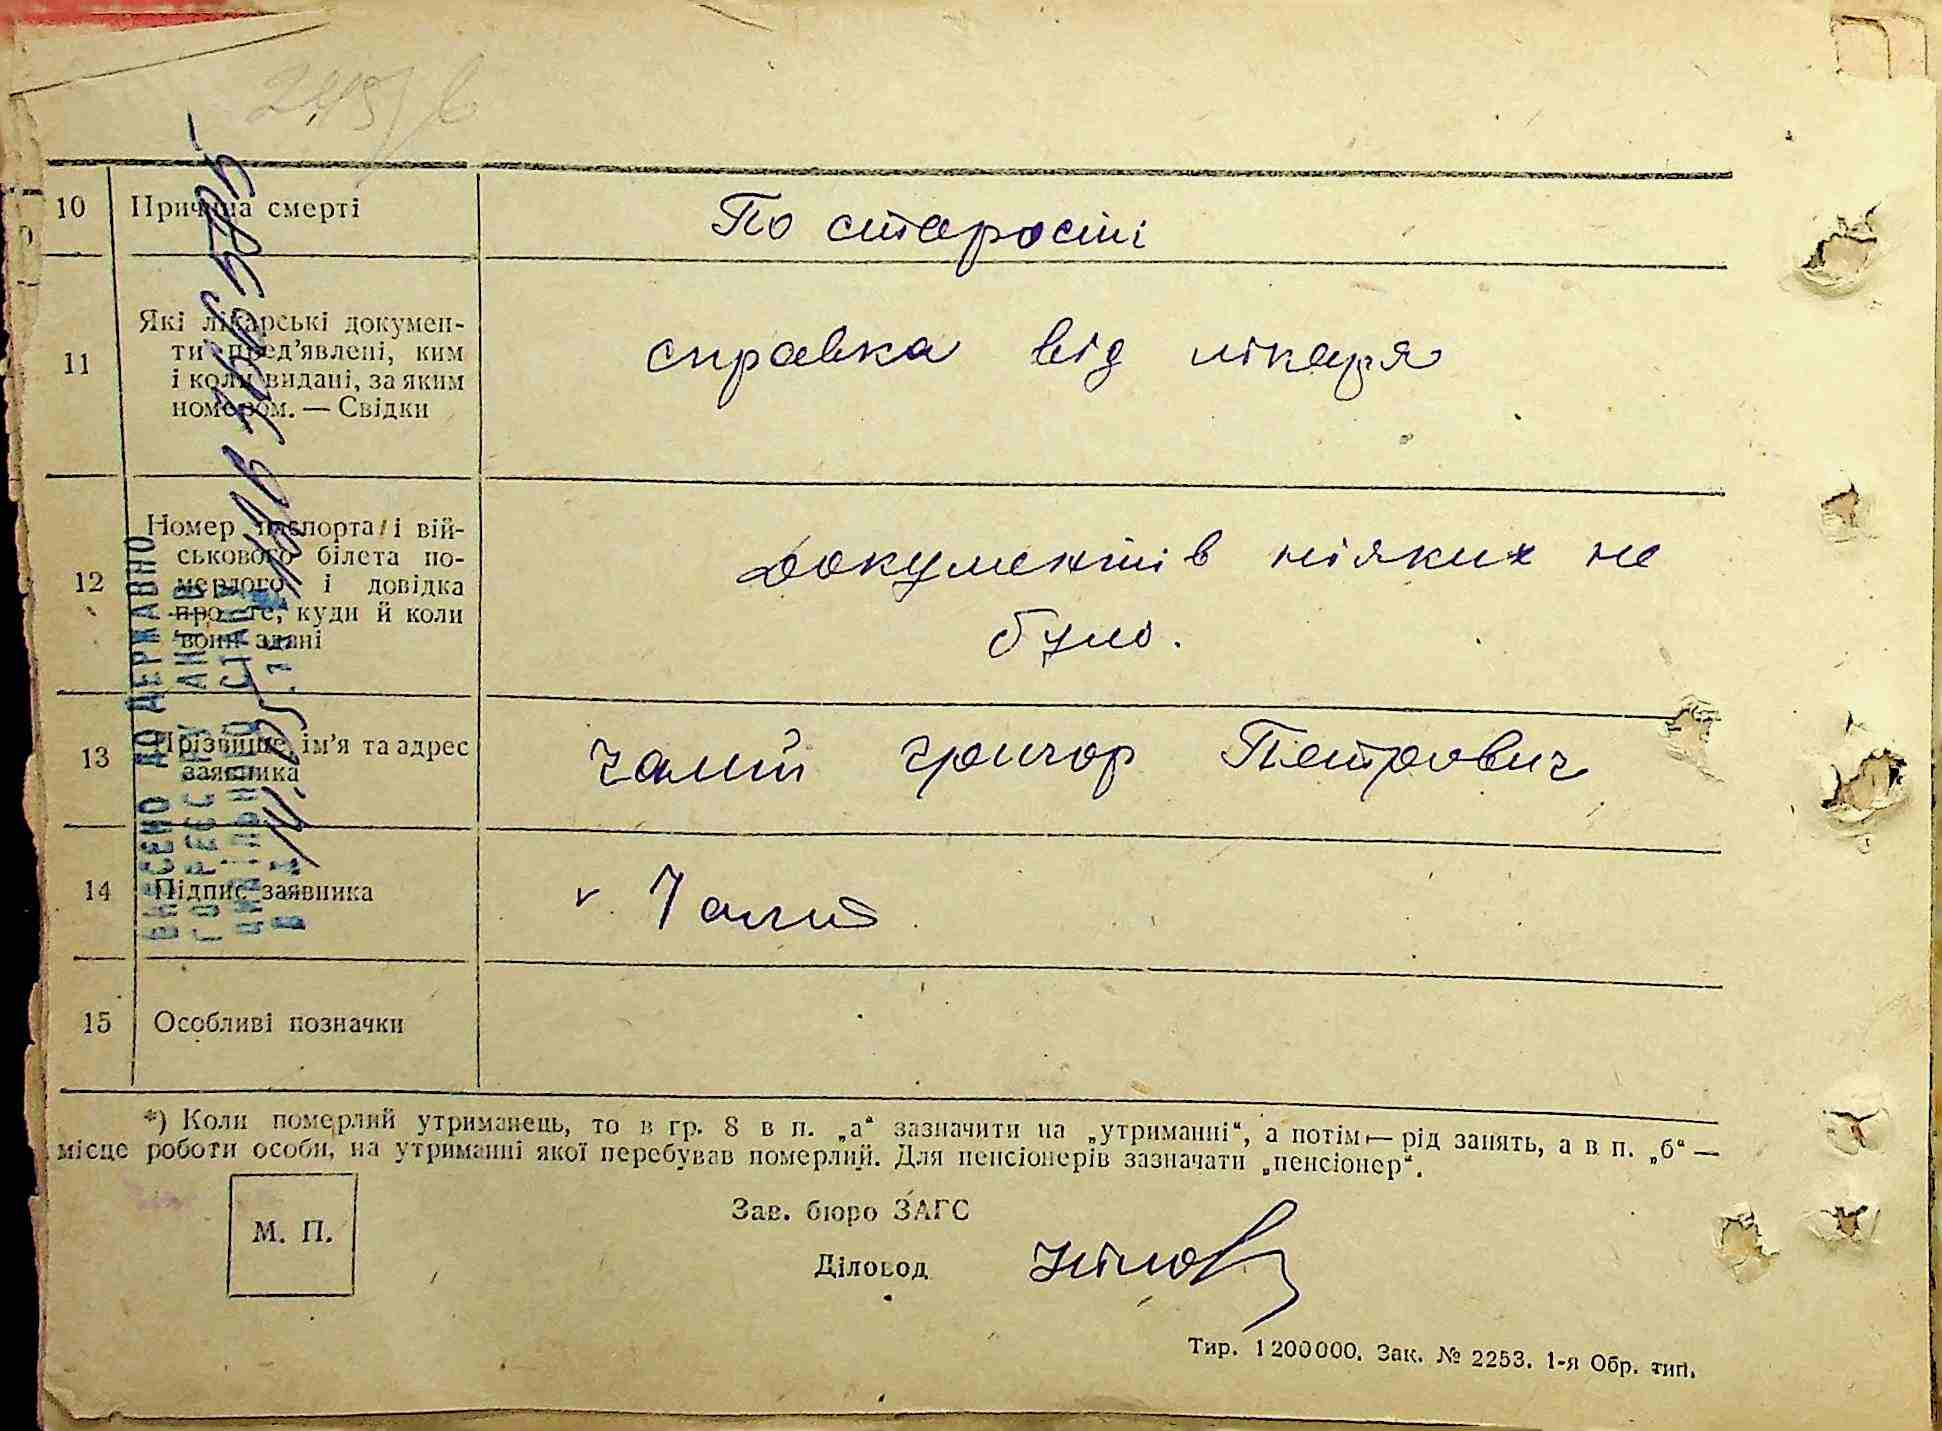 10 Причина смерті По старості
11 Які лікарські докумен-
ти пред’явлені, ким
і коли видані, за яким
номером. — Свідки
справка від лікаря
12 Номер паспорта і вій-
ськового білета по-
мерлого і довідка
про те, куди й коли
вони здані
документів ніяких не
було.
13 Прізвище, ім’я та адрес
заявника
Чалий Григор Петрович
14 Підпис заявника
v Чалий
15 Особливі позначки
ВНЕСЕНО ДО ДЕРЖАВНО
ГО РЕЄСТРУ АКТІВ
ЦИВІЛЬНОГО СТАНУ
*) Коли померлий утриманець, то в гр. 8 в п. „а“ зазначити на „утриманні“, а потім — рід занять, а в п. „б“ —
місце роботи особи, на утриманні якої перебував померлий. Для пенсіонерів зазначати „пенсіонер“.
М. П.
Зав. бюро ЗАГС
Діловод
Тир. 1200000. Зак. № 2253. 1-я Обр. тип.